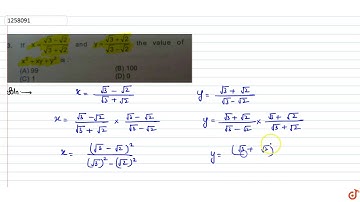 1258091
3. If x = (√3 − √2)/(√3 + √2) and y = (√3 + √2)/(√3 − √2) the value of
x² + xy + y² is
(A) 99 (B) 100
(C) 1 (D) 0
Soln → x = (√3 − √2)/(√3 + √2) y = (√3 + √2)/(√3 − √2)
x = (√3 − √2)/(√3 + √2) × (√3 − √2)/(√3 − √2) y = (√3 + √2)/(√3 − √2) × (√3 + √2)/(√3 + √2)
x = (√3 − √2)²/((√3)² − (√2)²) y = (√3 + √2)